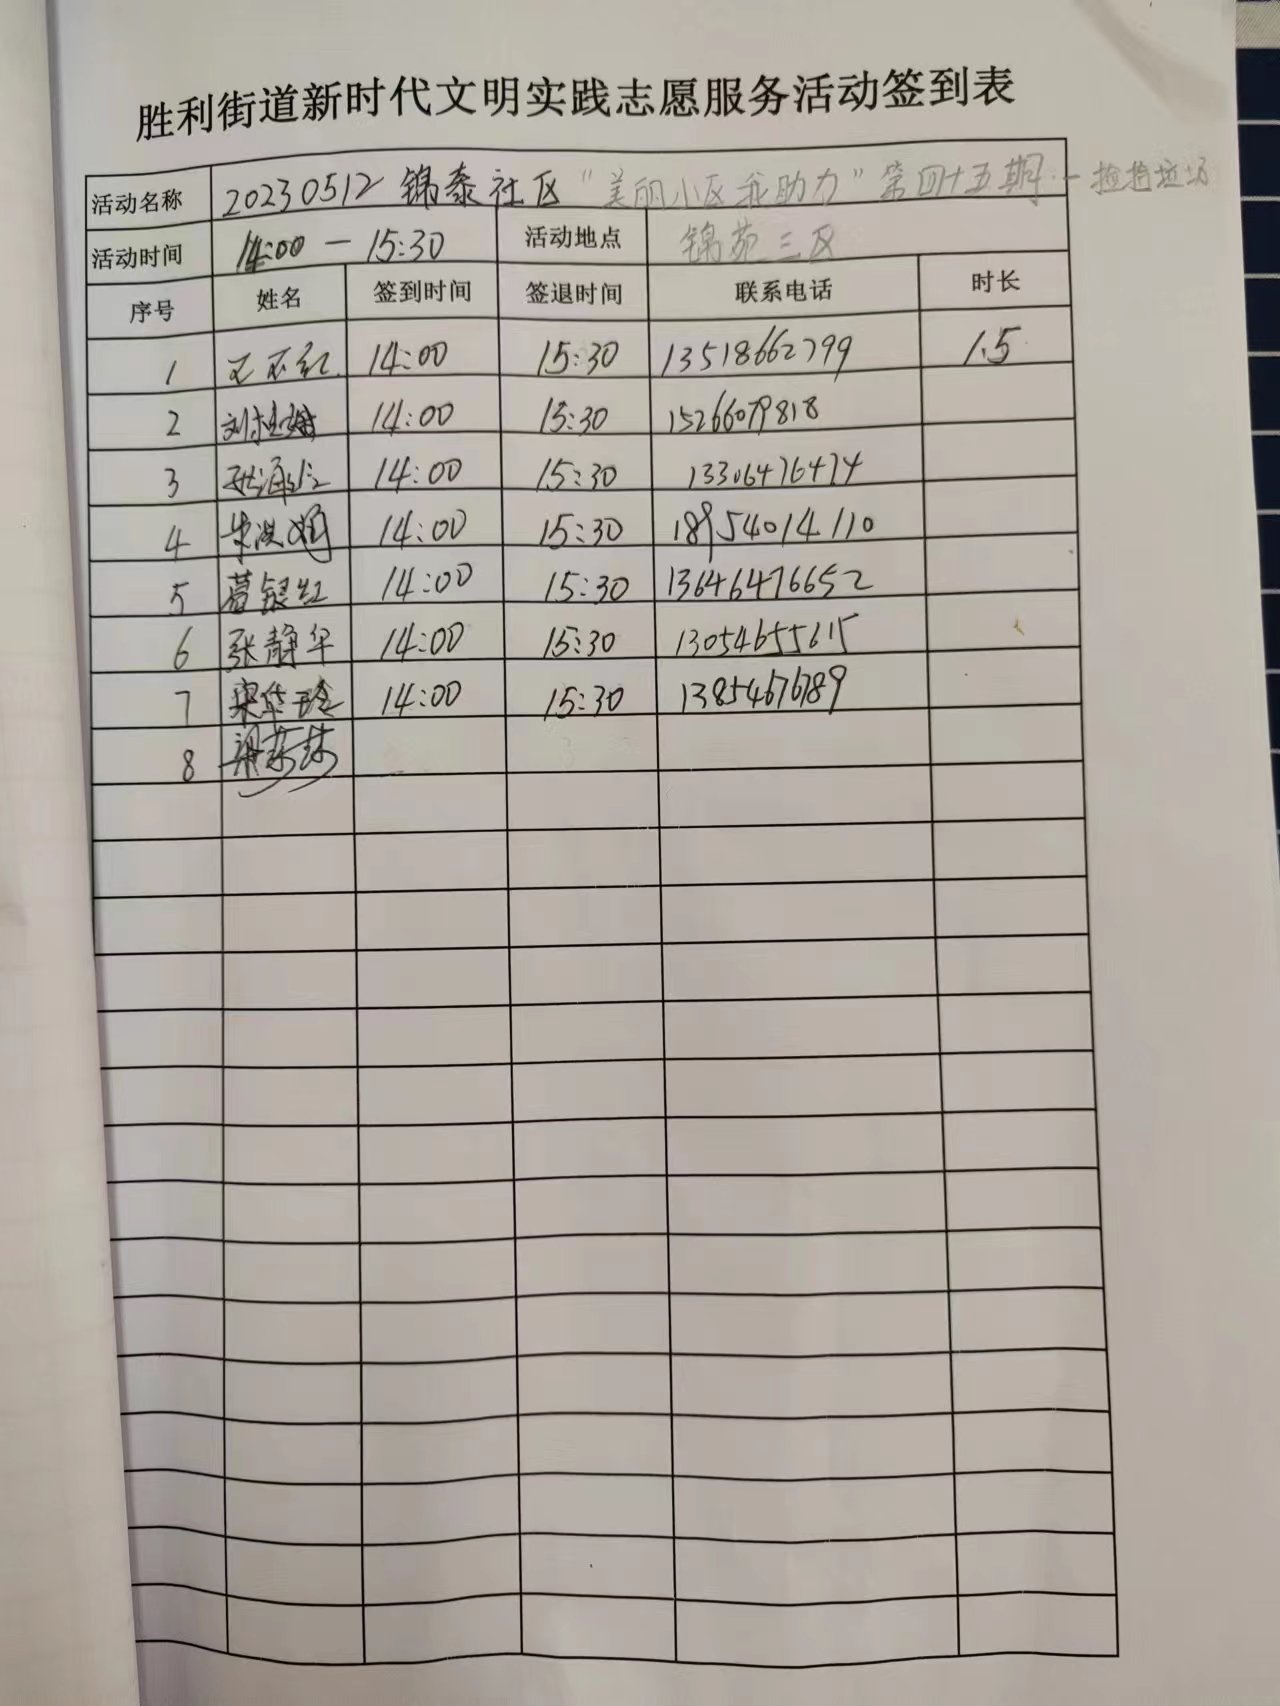 胜利街道新时代文明实践志愿服务活动签到表
活动名称 20230512 锦泰社区“美丽小区我助力”第四十五期·一捡拾垃圾
活动时间 14:00 — 15:30 活动地点 锦苑三区
序号 姓名 签到时间 签退时间 联系电话 时长
1 14:00 15:30 13518662799 1.5
2 刘桂娥 14:00 15:30 15266079818
3 14:00 15:30 13306476474
4 14:00 15:30 18954014110
5 葛银红 14:00 15:30 13646476652
6 张静华 14:00 15:30 13054655615
7 14:00 15:30 13854676789
8